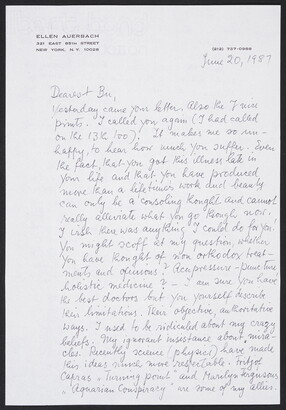 ELLEN AUERBACH
321 EAST 85TH STREET
NEW YORK, N.Y. 10028
(212) 737-0966
June 20, 1987
Dearest Bu,
Yesterday came your letter. Also the 7 nice
prints. I called you again (I had called
on the 13th too). It makes me so un-
happy, to hear how much you suffer. Even
the fact, that you got this illness late in
your life and that you have produced
more than a lifetimes work and beauty
can only be a consoling thought and cannot
really alleviate what you go through now.
I wish there was anything I could do for you.
You might scoff at my question, whether
you have thought of non orthodox treat-
ments and opinions? Acupressure-puncture
holistic medicine? – I am sure you have
the best doctors but you yourself describe
their limitations. Their objective, authoritative
ways. I used to be ridiculed about my crazy
beliefs. My ignorant insistance about mira-
cles. Recently science (physics) have made
this ideas much more respectable. Fritjof
Capras „Turning point" and Marilyn Fergusons
„Aquarian Conspiracy" are some of my allies.